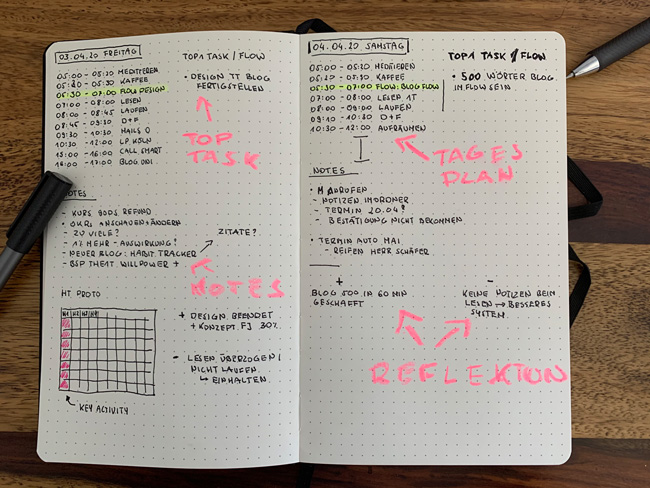 03.04.20 FREITAG
05:00 - 05:20 MEDITIEREN
05:20 - 05:30 KAFFEE
05:30 - 07:00 FLOW: DESIGN
07:00 - 08:00 LESEN
08:00 - 08:45 LAUFEN
08:45 - 09:30 D+F
09:30 - 10:30 MAILS 0
10:30 - 12:00 LP KÖLN
15:00 - 16:00 CALL SMART
16:00 - 17:00 BLOG UNI
TOP1 TASK / FLOW
• DESIGN TT BLOG
FERTIGSTELLEN
TOP
TASK
NOTES
- KURS BODS REFUND
• OKRS ANSCHAUEN + ÄNDERN
- ZU VIELE?
- 1% MEHR - AUSWIRKUNG?
- NEUER BLOG: HABIT TRACKER
- BSP THEMT WILLPOWER +
ZITATE?
NOTES
HT PROTO
H1 H2 H3 H4
KEY ACTIVITY
+ DESIGN BEENDET
+ KONZEPT FJ 30%
- LESEN ÜBERZOGEN /
NICHT LAUFEN
↳ EINHALTEN
04.04.20 SAMSTAG
05:00 - 05:20 MEDITIEREN
05:20 - 05:30 KAFFEE
05:30 - 07:00 FLOW: BLOG FLOW
07:00 - 08:00 LESEN 1T
08:00 - 09:00 LAUFEN
09:10 - 10:30 D+F
10:30 - 12:00 AUFRÄUMEN
TOP1 TASK / FLOW
• 500 WÖRTER BLOG
IN FLOW SEIN
TAGES
PLAN
NOTES
• M ANRUFEN
- NOTIZEN IM ORDNER
- TERMIN 20.04?
- BESTÄTIGUNG NICHT BEKOMMEN
• TERMIN AUTO MAI
- REIFEN HERR SCHÄFER
+
BLOG 500 IN 60 MIN
GESCHAFFT
-
KEINE NOTIZEN BEIM
LESEN → BESSERES
SYSTEM.
REFLEKTION